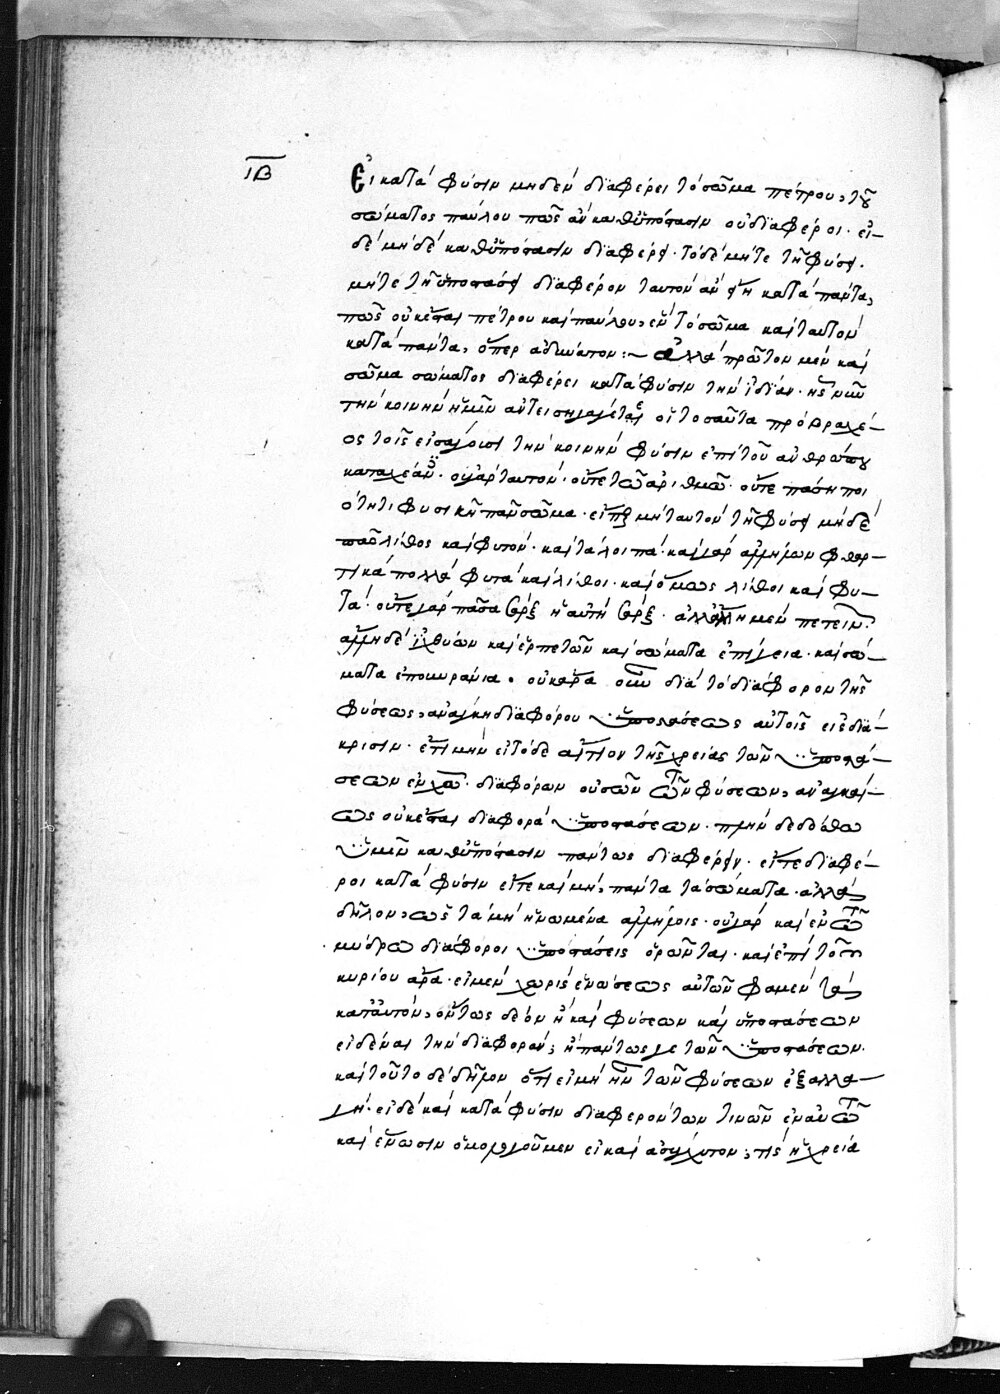 ιβ
Εἰ κατὰ φύσιν μηδὲν διαφέρει τὸ σῶμα πέτρου, τοῦ
σώματος παύλου πῶς ἂν καθ᾽ ὑπόστασιν οὐ διαφέροι· εἰ
δὲ μὴ δὲ καθ᾽ ὑπόστασιν διαφέρει· τὸ δὲ μήτε τῇ φύσει·
μήτε τῇ ὑποστάσει διαφέρον ταυτὸν ἂν εἴη κατὰ πάντα,
πῶς οὐκ ἔσται πέτρου καὶ παύλου, ἓν τὸ σῶμα καὶ ταυτὸν
κατὰ πάντα, ὅπερ ἀδύνατον :~ ἀλλὰ πρῶτον μὲν καὶ
σῶμα σώματος διαφέρει κατὰ φύσιν τὴν ἰδίαν· ἧς νῦν
τὴν κοινὴν ἡμῖν ἀντεισηγάγετε οἱ τοσαῦτα πρὸ βραχέ-
ος τοῖς εἰσάγουσι τὴν κοινὴν φύσιν ἐπὶ τοῦ ἀνθρώπου
καταχέαν· οὐ γὰρ ταυτὸν· οὔτε τῷ ἀριθμῷ· οὔτε πάσῃ ποι
ότητι φυσικῇ πᾶν σῶμα· εἴπερ μὴ ταυτὸν τῇ φύσει μηδὲ
πᾶς λίθος καὶ φυτὸν· καὶ τὰ λοιπά· καὶ γὰρ ἀλλήλων φθαρ-
τικὰ πολλὰ φυτὰ καὶ λίθοι· καὶ ὅμως λίθοι καὶ φυ-
τά· οὔτε γὰρ πᾶσα σὰρξ ἡ αὐτὴ σάρξ· ἀλλ᾽ ἄλλη μὲν πετεινῶν·
ἄλλη δὲ ἰχθύων καὶ ἑρπετῶν καὶ σώματα ἐπίγεια· καὶ σώ-
ματα ἐπουράνια· οὐκ ἄρα οὖν διὰ τὸ διάφορον τῆς
φύσεως, ἀνάγκη διαφόρου ὑποστάσεως αὐτοῖς εἰς διά-
κρισιν· ἔτι μὴν εἰ τόδε αἴτιον τῆς χρείας τῶν ὑποστά-
σεων ἐν χῶ· διαφόρων οὐσῶν τῶν φύσεων, ἀναγκαί-
ως οὐκ ἔσται διαφορὰ ὑποστάσεων· πλὴν δεδόσθω
ὑμῖν καθ᾽ ὑπόστασιν πάντως διαφέρειν· εἴτε διαφέ-
ροι κατὰ φύσιν εἴτε καὶ μὴ, πάντα τὰ σώματα· ἀλλὰ
δῆλον, ὡς τὰ μὴ ἡνωμένα ἀλλήλοις· οὐ γὰρ καὶ ἐν τῶ
μύδρω διάφοροι ὑποστάσεις ὁρῶνται· καὶ ἐπὶ τοῦ
κυρίου ἄρα· εἰ μὲν χωρὶς ἑνώσεως αὐτῶν φαμὲν τὰς
κατ᾽ αὐτὸν, ὄντως δέον ἢ καὶ φύσεων καὶ ὑποστάσεων
εἰδέναι τὴν διαφορὰν, ἢ πάντως γε τῶν ὑποστάσεων·
καὶ τοῦτο δὲ δῆλον ὅτι εἰ μὴ ἦν τῶν φύσεων ἐξαλλα-
γή· εἰ δὲ καὶ κατὰ φύσιν διαφερόντων τινῶν ἐν αὐτῶ
καὶ ἕνωσιν ὁμολογοῦμεν εἰ καὶ ἀσύγχυτον, τίς ἡ χρεία